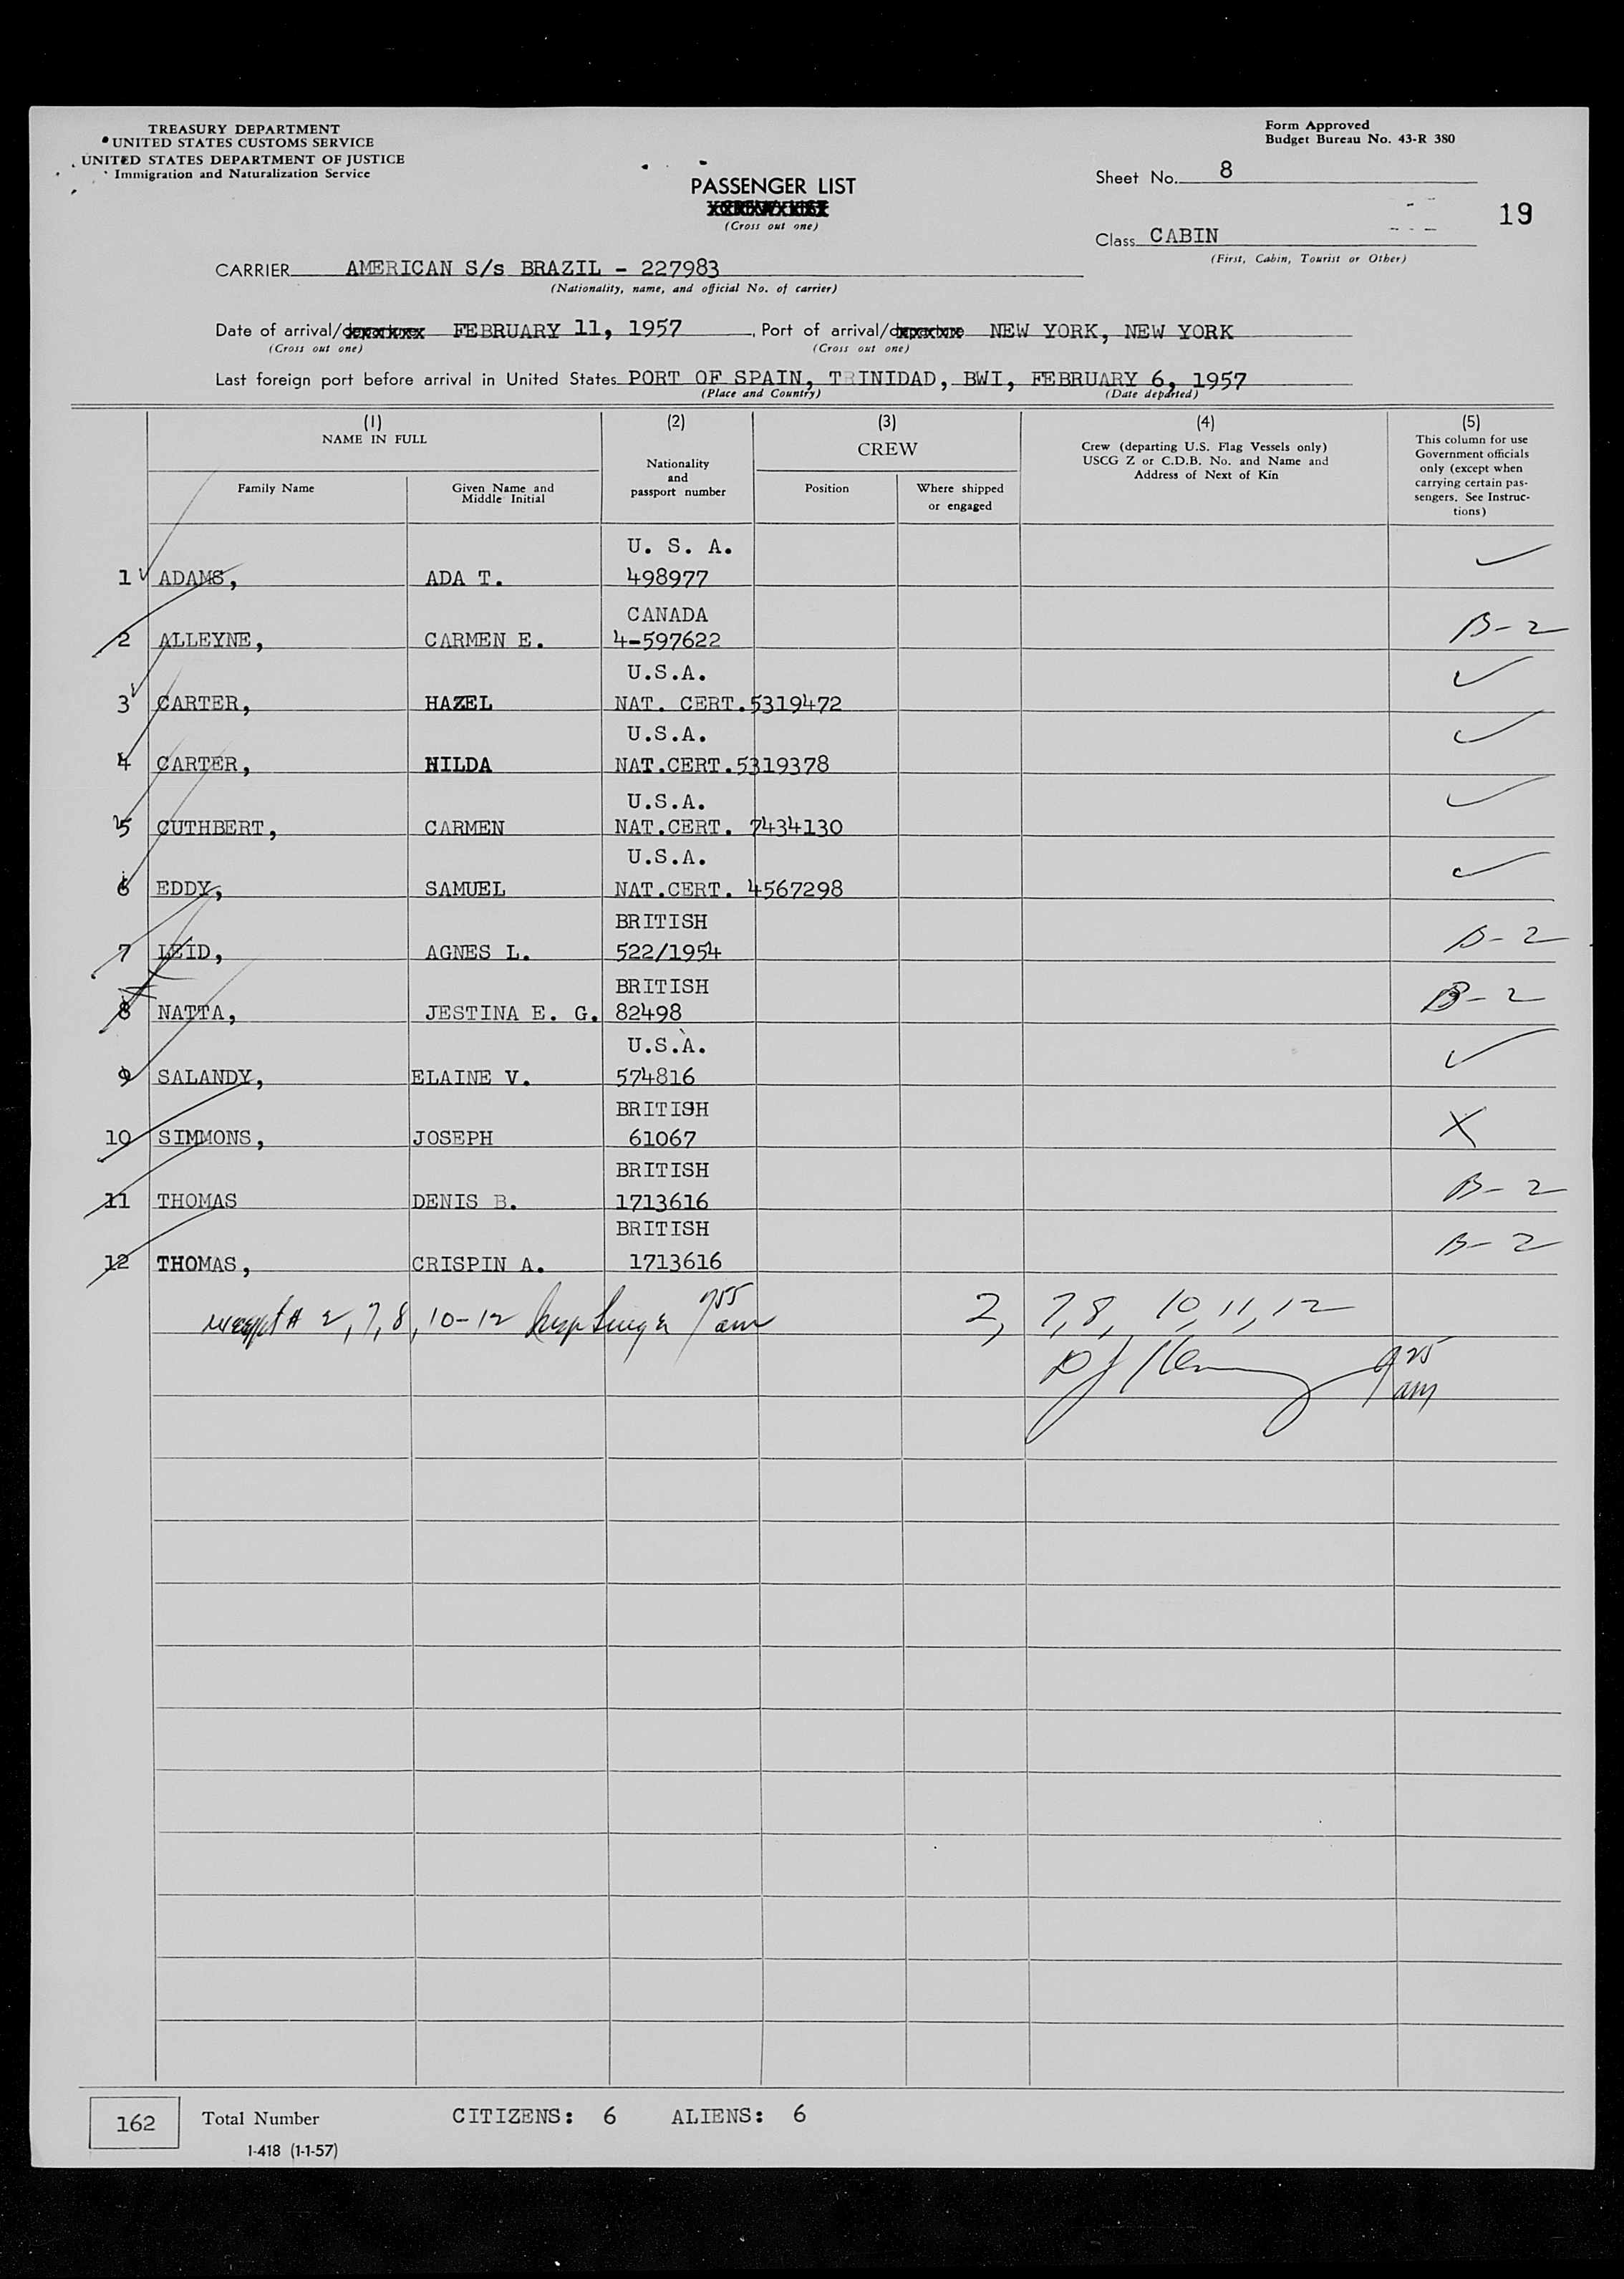 TREASURY DEPARTMENT
UNITED STATES CUSTOMS SERVICE
UNITED STATES DEPARTMENT OF JUSTICE
Immigration and Naturalization Service
Form Approved
Budget Bureau No. 43-R 380
PASSENGER LIST
(Cross out one)
Sheet No. 8
19
Class CABIN
(First, Cabin, Tourist or Other)
CARRIER AMERICAN S/s BRAZIL - 227983
(Nationality, name, and official No. of carrier)
Date of arrival/departure FEBRUARY 11, 1957, Port of arrival/departure NEW YORK, NEW YORK
(Cross out one) (Cross out one)
Last foreign port before arrival in United States PORT OF SPAIN, TRINIDAD, BWI, FEBRUARY 6, 1957
(Place and Country) (Date departed)
(1) NAME IN FULL
Family Name
Given Name and Middle Initial
(2) Nationality and passport number
(3) CREW
Position
Where shipped or engaged
(4) Crew (departing U.S. Flag Vessels only) USCG Z or C.D.B. No. and Name and Address of Next of Kin
(5) This column for use Government officials only (except when carrying certain passengers. See Instructions)
U. S. A.
1 ADAMS, ADA T. 498977
CANADA
2 ALLEYNE, CARMEN E. 4-597622 B-2
U.S.A.
3 CARTER, HAZEL NAT. CERT.5319472
U.S.A.
4 CARTER, HILDA NAT.CERT.5319378
U.S.A.
5 CUTHBERT, CARMEN NAT.CERT. 7434130
U.S.A.
6 EDDY, SAMUEL NAT.CERT. 4567298
BRITISH
7 LEID, AGNES L. 522/1954 B-2
BRITISH
8 NATTA, JESTINA E. G. 82498 B-2
U.S.A.
9 SALANDY, ELAINE V. 574816
BRITISH
10 SIMMONS, JOSEPH 61067 X
BRITISH
11 THOMAS DENIS B. 1713616 B-2
BRITISH
12 THOMAS, CRISPIN A. 1713616 B-2
except # 2, 7, 8, 10-12 755 am
2, 7, 8, 10, 11, 12
925 am
162 Total Number CITIZENS: 6 ALIENS: 6
I-418 (1-1-57)